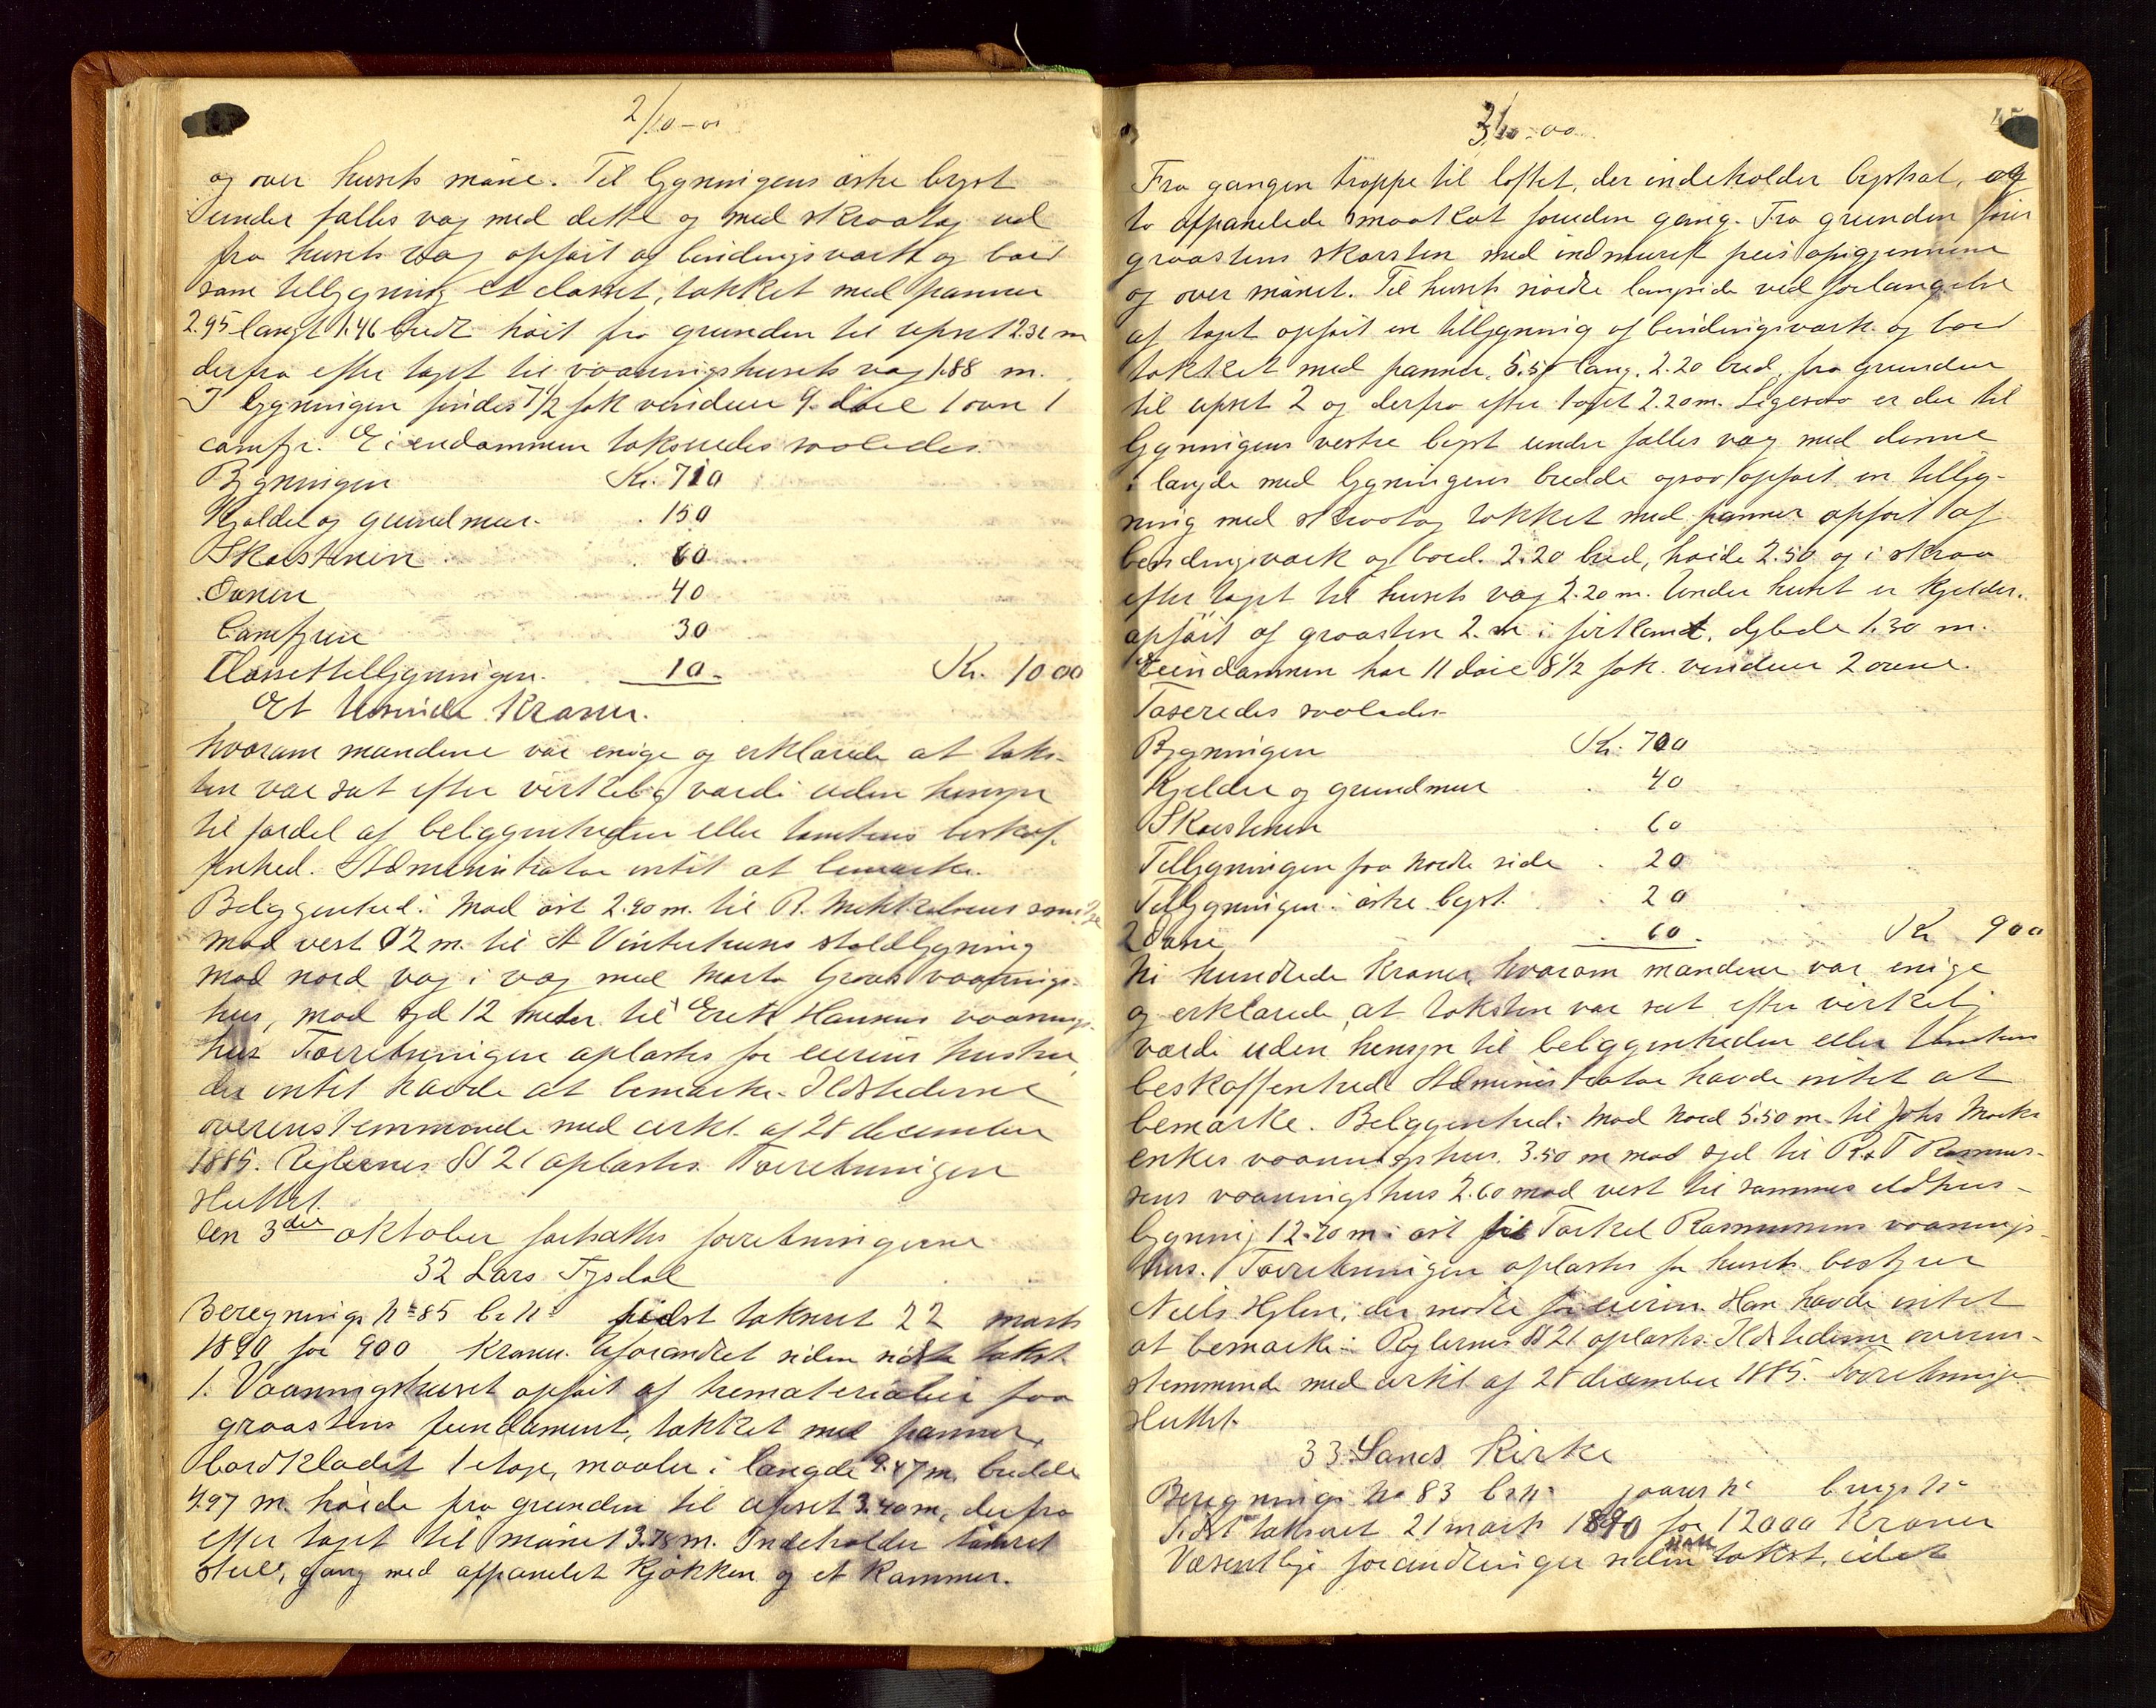 2/10-00
og over husets møne. Til bygningens østre bryst
under fælles væg med dette og med skraatag ud
fra husets væg opført af bindingsværk og bord
som tilbygning et closset, tækket med panner
2.95 langt 1.46 bredt høit fra grunden til upset 2.32 m
derfra efter taget til vaaningshusets væg 1.88 m.
I bygningen findes 7 1/2 fok vinduer 9 døre 1 ovn 1
comfyr. Eiendommen takseredes saaledes
Bygningen Kr. 710
Kjelder og grundmur . 150
Skorstenen . 60
Ovnen 40
Comfyren 30
Clossettilbygningen 10 Kr. 1000
Et tusinde Kroner.
hvorom mændene var enige og erklærede at taks-
ten var sat efter virkelig værdi uden hensyn
til fordel af beliggenheden eller tomtens beskaf-
fenhed. Administrator intet at bemærke.
Beliggenhed: Mod øst 2.90 m. til R. Mikkelsens
mod vest 12 m. til A Vintertuns staldbygning
mod nord væg i væg med Marta Graves vaanings-
hus, mod syd 12 meter til Erik Hansens vaanings-
hus Forretningen oplæstes for eierens hustru
der intet havde at bemærke. Ildstederne
overensstemmende med cirkl. af 28 december
1885. Reglernes § 21 oplæstes. Forretningen
sluttet.
Den 3die oktober fortsattes forretningerne
32 Lars Tysdal
Beregnings № 85 br № sidst takseret 22 marts
1890 for 900 Kroner. Uforandret siden sidste takst
1. Vaaningshuset opført af træmaterialier paa
graastens fundament, tækket med panner,
bordklædt 1 etage, maaler i længde 9.47 m. bredde
4.97 m. høide fra grunden til upset 3.40 m, derfra
efter taget til mønet 3.78 m. Indeholder tømret
stue, gang med afpanelet kjøkken og et kammer.
3/10-00
Fra gangen trappe til loftet, der indeholder brystral, og
to afpanelede smaakot foruden gang. Fra grunden fører
graastens skorsten med indmuret peis opigjennem
og over mønet. Til husets nordre langside ved forlængelse
af taget opført en tilbygning af bindingsværk og bord
tækket med panner, 5.50 lang, 2.20 bred, fra grunden
til upset 2 og derfra efter taget 2.20 m. Ligesaa er der til
bygningens vestre bryst under fælles væg med denne
i længde med bygningens bredde ogsaa opført en tilbyg-
ning med skraatag tækket med panner opført af
bindingsværk og bord. 2.20 bred, høide 2.50 og i skraa
efter taget til husets væg 2.20 m. Under huset er kjelder
opført af graasten 2. m i firkant, dybde 1.30 m.
Eiendommen har 11 døre 8 1/2 fok. vinduer 2 ovne.
Taxeredes saaledes
Bygningen Kr. 700
Kjelder og grundmur . 40
Skorstenen . 60
Tilbygningen paa nordre side . 20
Tilbygningen i østre bryst . 20
2 Ovne . 60. Kr 900
Ni hundrede Kroner, hvorom mændene var enige
og erklærede, at taksten var sat efter virkelig
værdi uden hensyn til beliggenheden eller tomtens
beskaffenhed Administrator havde intet at
bemærke. Beliggenhed: Mod nord 5.50 m. til Johs Moks
enkes vaaningshus. 3.50 m mod syd til R & T Rasmus-
sens vaaningshus 2.60 mod vest til sammes ildhus-
bygning 12.20 m i øst til Torkel Rasmussens vaanings-
hus. Forretningen oplæstes for husets bestyrer
Niels Hylen, der mødte for eieren. Han havde intet
at bemærke. Reglernes § 21 oplæstes. Ildstederne overens-
stemmende med cirkl. af 28 december 1885. Forretningen
sluttet.
33 Sands Kirke
Beregnings № 83 br № gaards № brugs №
Sidst takseret 21 marts 1890 for 12000 Kroner
Væsentlige forandringer siden takst, idet